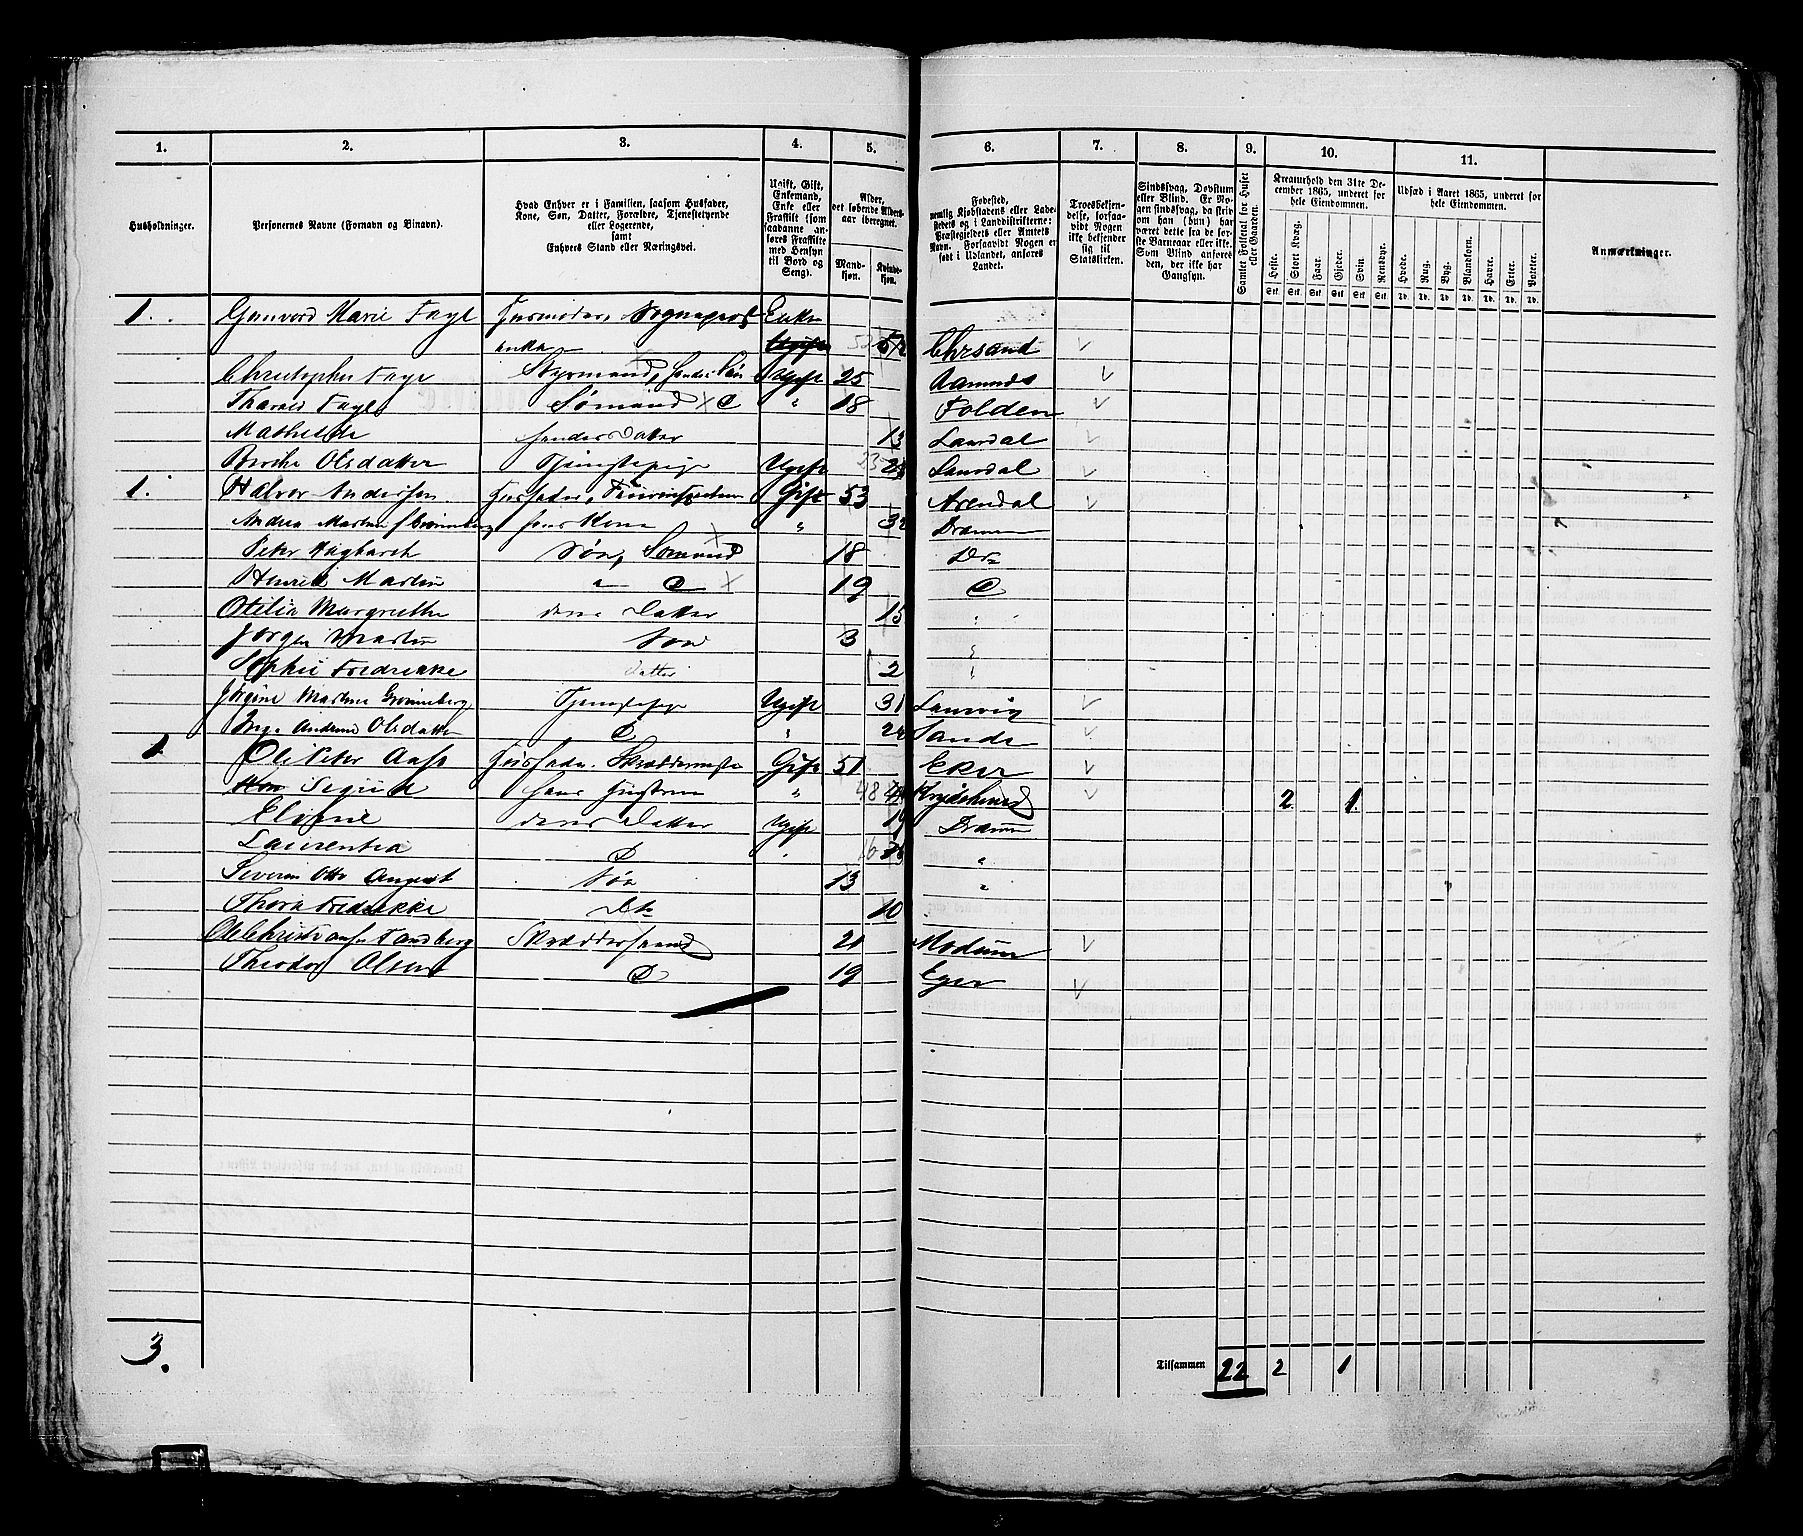 1. 2. 3. 4. 5. 6. 7. 8. 9. 10. 11.
Husholdninger.
Personernes Navne (Fornavn og Binavn).
Hvad Enhver er i Familien, saasom Husfader, Kone, Søn, Datter, Forældre, Tjenestetyende eller Logerende, samt Enhvers Stand eller Næringsvei.
Ugift, Gift, Enkemand, Enke eller Fraskilt (som saadanne anføres Fraskilte med Hensyn til Bord og Seng).
Alder, det løbende Alders- aar iberegnet.
Mand- kjøn. Kvinde- kjøn.
Fødested, nemlig Kjøbstadens eller Ladestedets og i Landdistrikterne: Præstegjeldets eller Amtets Navn. Forsaavidt Nogen er født i Udlandet, anføres Landet.
Troesbekjendelse, forsaavidt Nogen ikke bekjender sig til Statskirken.
Sindssvag, Døvstum eller Blind. Er Nogen sindssvag, da skriv om han (hun) har været dette fra de første Barneaar eller ikke. Som Blind anføres den, der ikke har Gangsyn.
Samlet Folketal for Huset eller Gaarden.
Kreaturhold den 31te December 1865, underet for hele Eiendommen.
Heste. Stort Kvæg. Faar. Gjeder. Svin. Rensdyr.
Stk. Stk. Stk. Stk. Stk. Stk.
Udsæd i Aaret 1865, underet for hele Eiendommen.
Hvede. Rug. Byg. Blandkorn. Havre. Erter. Poteter.
Td. Td. Td. Td. Td. Td. Td.
Anmærkninger.
1. Gunvord Marie Faye Husmoder, Sogneprest Enke
enke 52 Chrsand
Christopher Faye Styrmand, hendes Søn Ugift 25
Tharald Faye Sømand x D " 18 Folden
Mathilde hendes Datter 13 Laurdal
Berthe Olsdatter Tjenestepige Ugift 25 Laurdal
1. Halvor Anderssen Husfader, Gift 53 Arendal
Andrea Martine f Grønneberg hans Kone " 32 Drammen
Peter Hagbarth Søn, Sømand 18 Do
Henrik Martin " D x 19 D
Otilia Margrethe deres Datter 15 "
Jørgen Martin Søn 3 "
Sophie Fredrikke Datter 2 "
Jørgine Martine Grønneberg Tjenestepige Ugift 31 Laurvig
Inga Andrine Olsdatter D " 22 Sande
1 Ole Peter Aass Husfader. Skræddermester Gift 51 Eker
Sigrid hans Hustrue " 48 Krydsherred 2 1
Elisine deres Datter Ugift 19 Dramm
Laurentia D 16 "
Severin Otto August Søn 13 "
Thora Fredrikke Dtr 10
Ole Christiansen Sandberg Skræddersvend 21 Modum
Theodor Olsen D 19 Eger
3.
Tilsammen 22 2 1